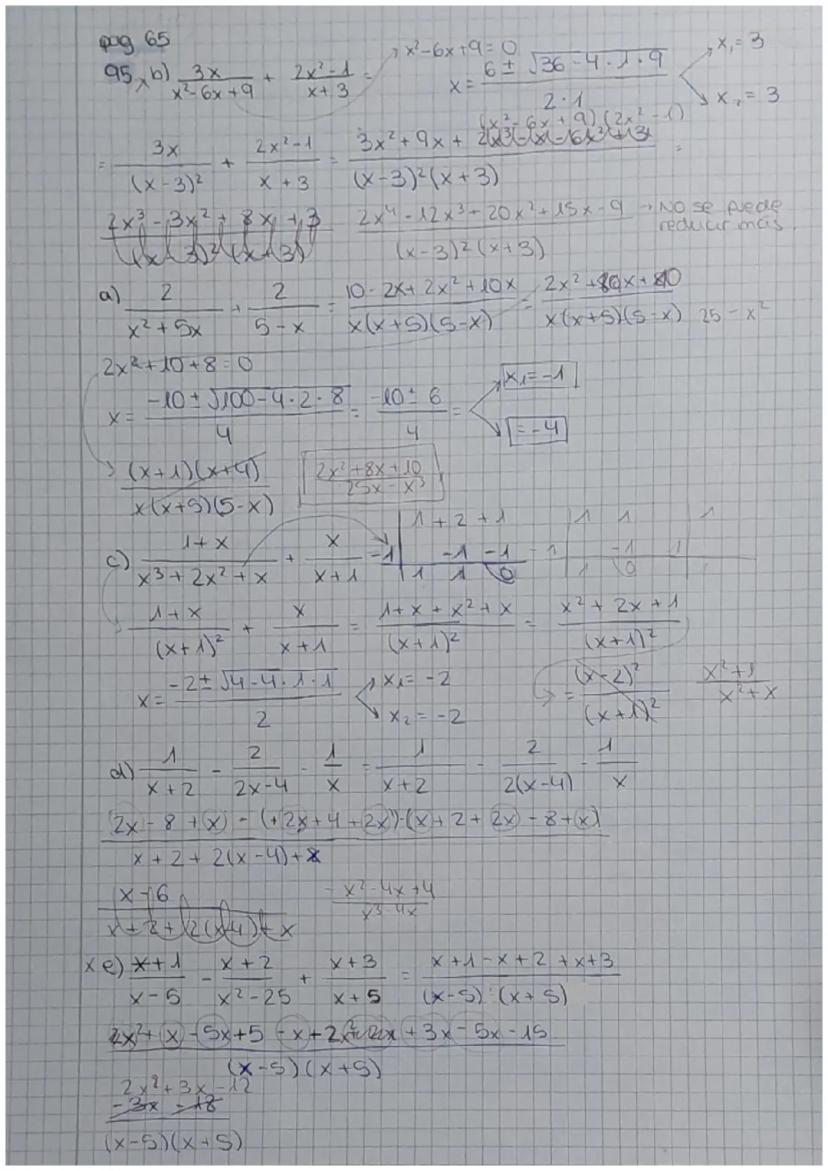 pag 65
95 b) 3x/(x²-6x+9) + (2x²-1)/(x+3) = → x²-6x+9=0
x = (6 ± √(36-4·1·9))/(2·1) x₁=3
x₂=3
(x²-6x+9)(2x²-1)
= 3x/(x-3)² + (2x²-1)/(x+3) = (3x²+9x+ )/((x-3)²(x+3)) =
(2x³-3x²+8x+3)/((x-3)²(x+3)) (2x⁴-12x³+20x²+15x-9)/((x-3)²(x+3)) → No se puede reducir más.
a) 2/(x²+5x) + 2/(5-x) = (10-2x+2x²+10x)/(x(x+5)(5-x)) = (2x²+ x+10)/(x(x+5)(5-x)) 25-x²
2x²+10+8=0
x = (-10±√(100-4·2·8))/4 = (-10±6)/4 = x₁=-1
=-4
((x+1)(x+4))/(x(x+5)(5-x)) (2x²+8x+10)/(25x-x³)
1 +2 +1 1 1 1
c) (1+x)/(x³+2x²+x) + x/(x+1) -1 -1 -1 -1 -1 1
1 1 0 1 0
(1+x)/(x+1)² + x/(x+1) = (1+x+x²+x)/(x+1)² = (x²+2x+1)/(x+1)²
x = (-2±√(4-4·1·1))/2 x₁=-2 = (x-2)²/(x+1)² (x²+1)/(x²+x)
x₂=-2
d) 1/(x+2) - 2/(2x-4) - 1/x = 1/(x+2) - 2/(2(x-4)) - 1/x
((2x-8+x)-(+2x+4+2x)-(x+2+2x-8+x))/(x+2+2(x-4)+x)
(x-16)/(x+2+2(x-4)+x) (-x²-4x+4)/(x³-4x)
x e) (x+1)/(x-5) - (x+2)/(x²-25) + (x+3)/(x+5) = (x+1-x+2+x+3)/((x-5)·(x+5))
( x²+x-5x+5-x+2 +3x-5x-15)/((x-5)(x+5))
2x²+3x-12
-3x -18
(x-5)(x+5)